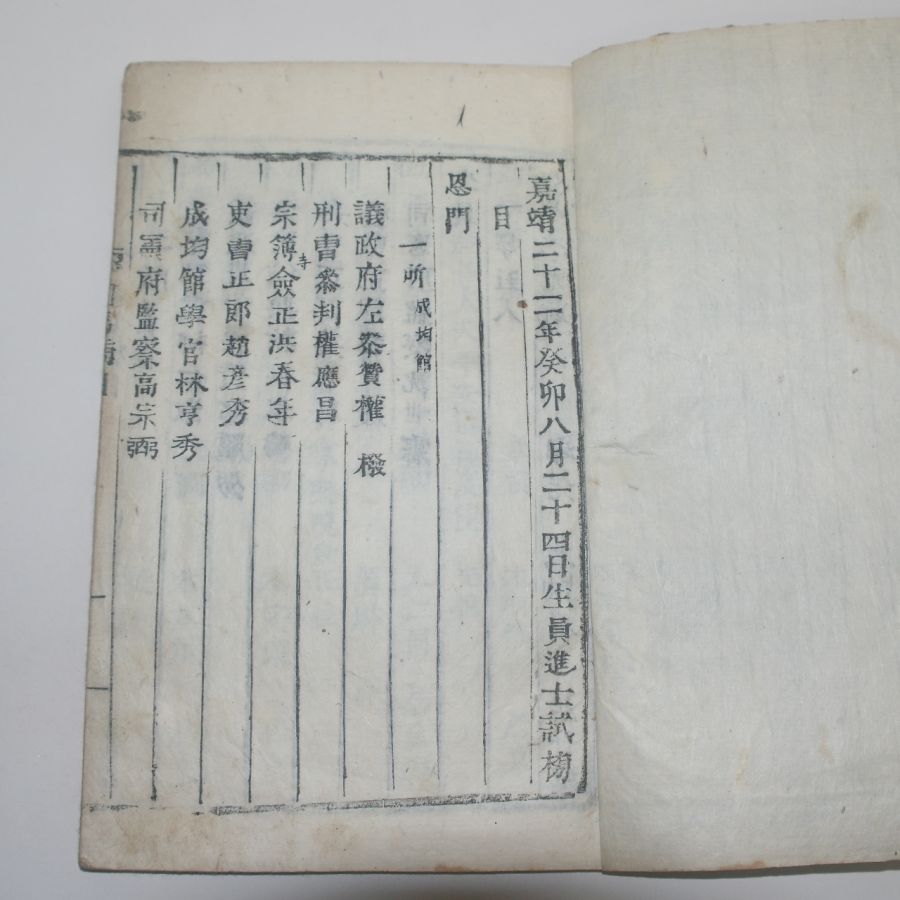 嘉靖二十二年癸卯八月二十四日生員進士試榜
目
恩門
一所成均館
議政府左叅賛權橃
刑曹叅判權應昌
宗簿寺僉正洪春年
吏曹正郎趙彦秀
成均館學官林亨秀
司憲府監察高宗弼